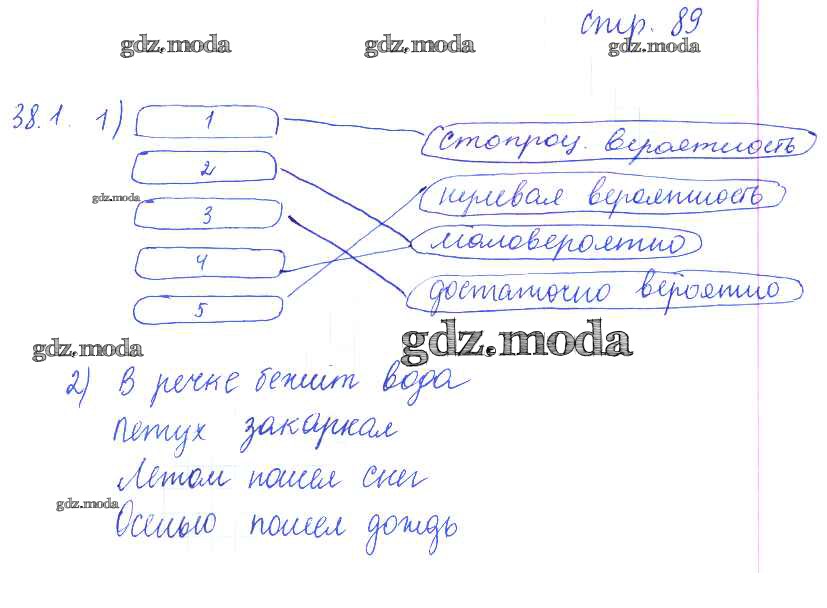 стр. 89
gdz.moda gdz.moda gdz.moda
38.1. 1) 1 стопроц. вероятность
2
gdz.moda нулевая вероятность
3
маловероятно
4
достаточно вероятно
5
gdz.moda gdz.moda
2) В речке бежит вода
Петух закаркал
Летом пошел снег
gdz.moda
Осенью пошел дождь